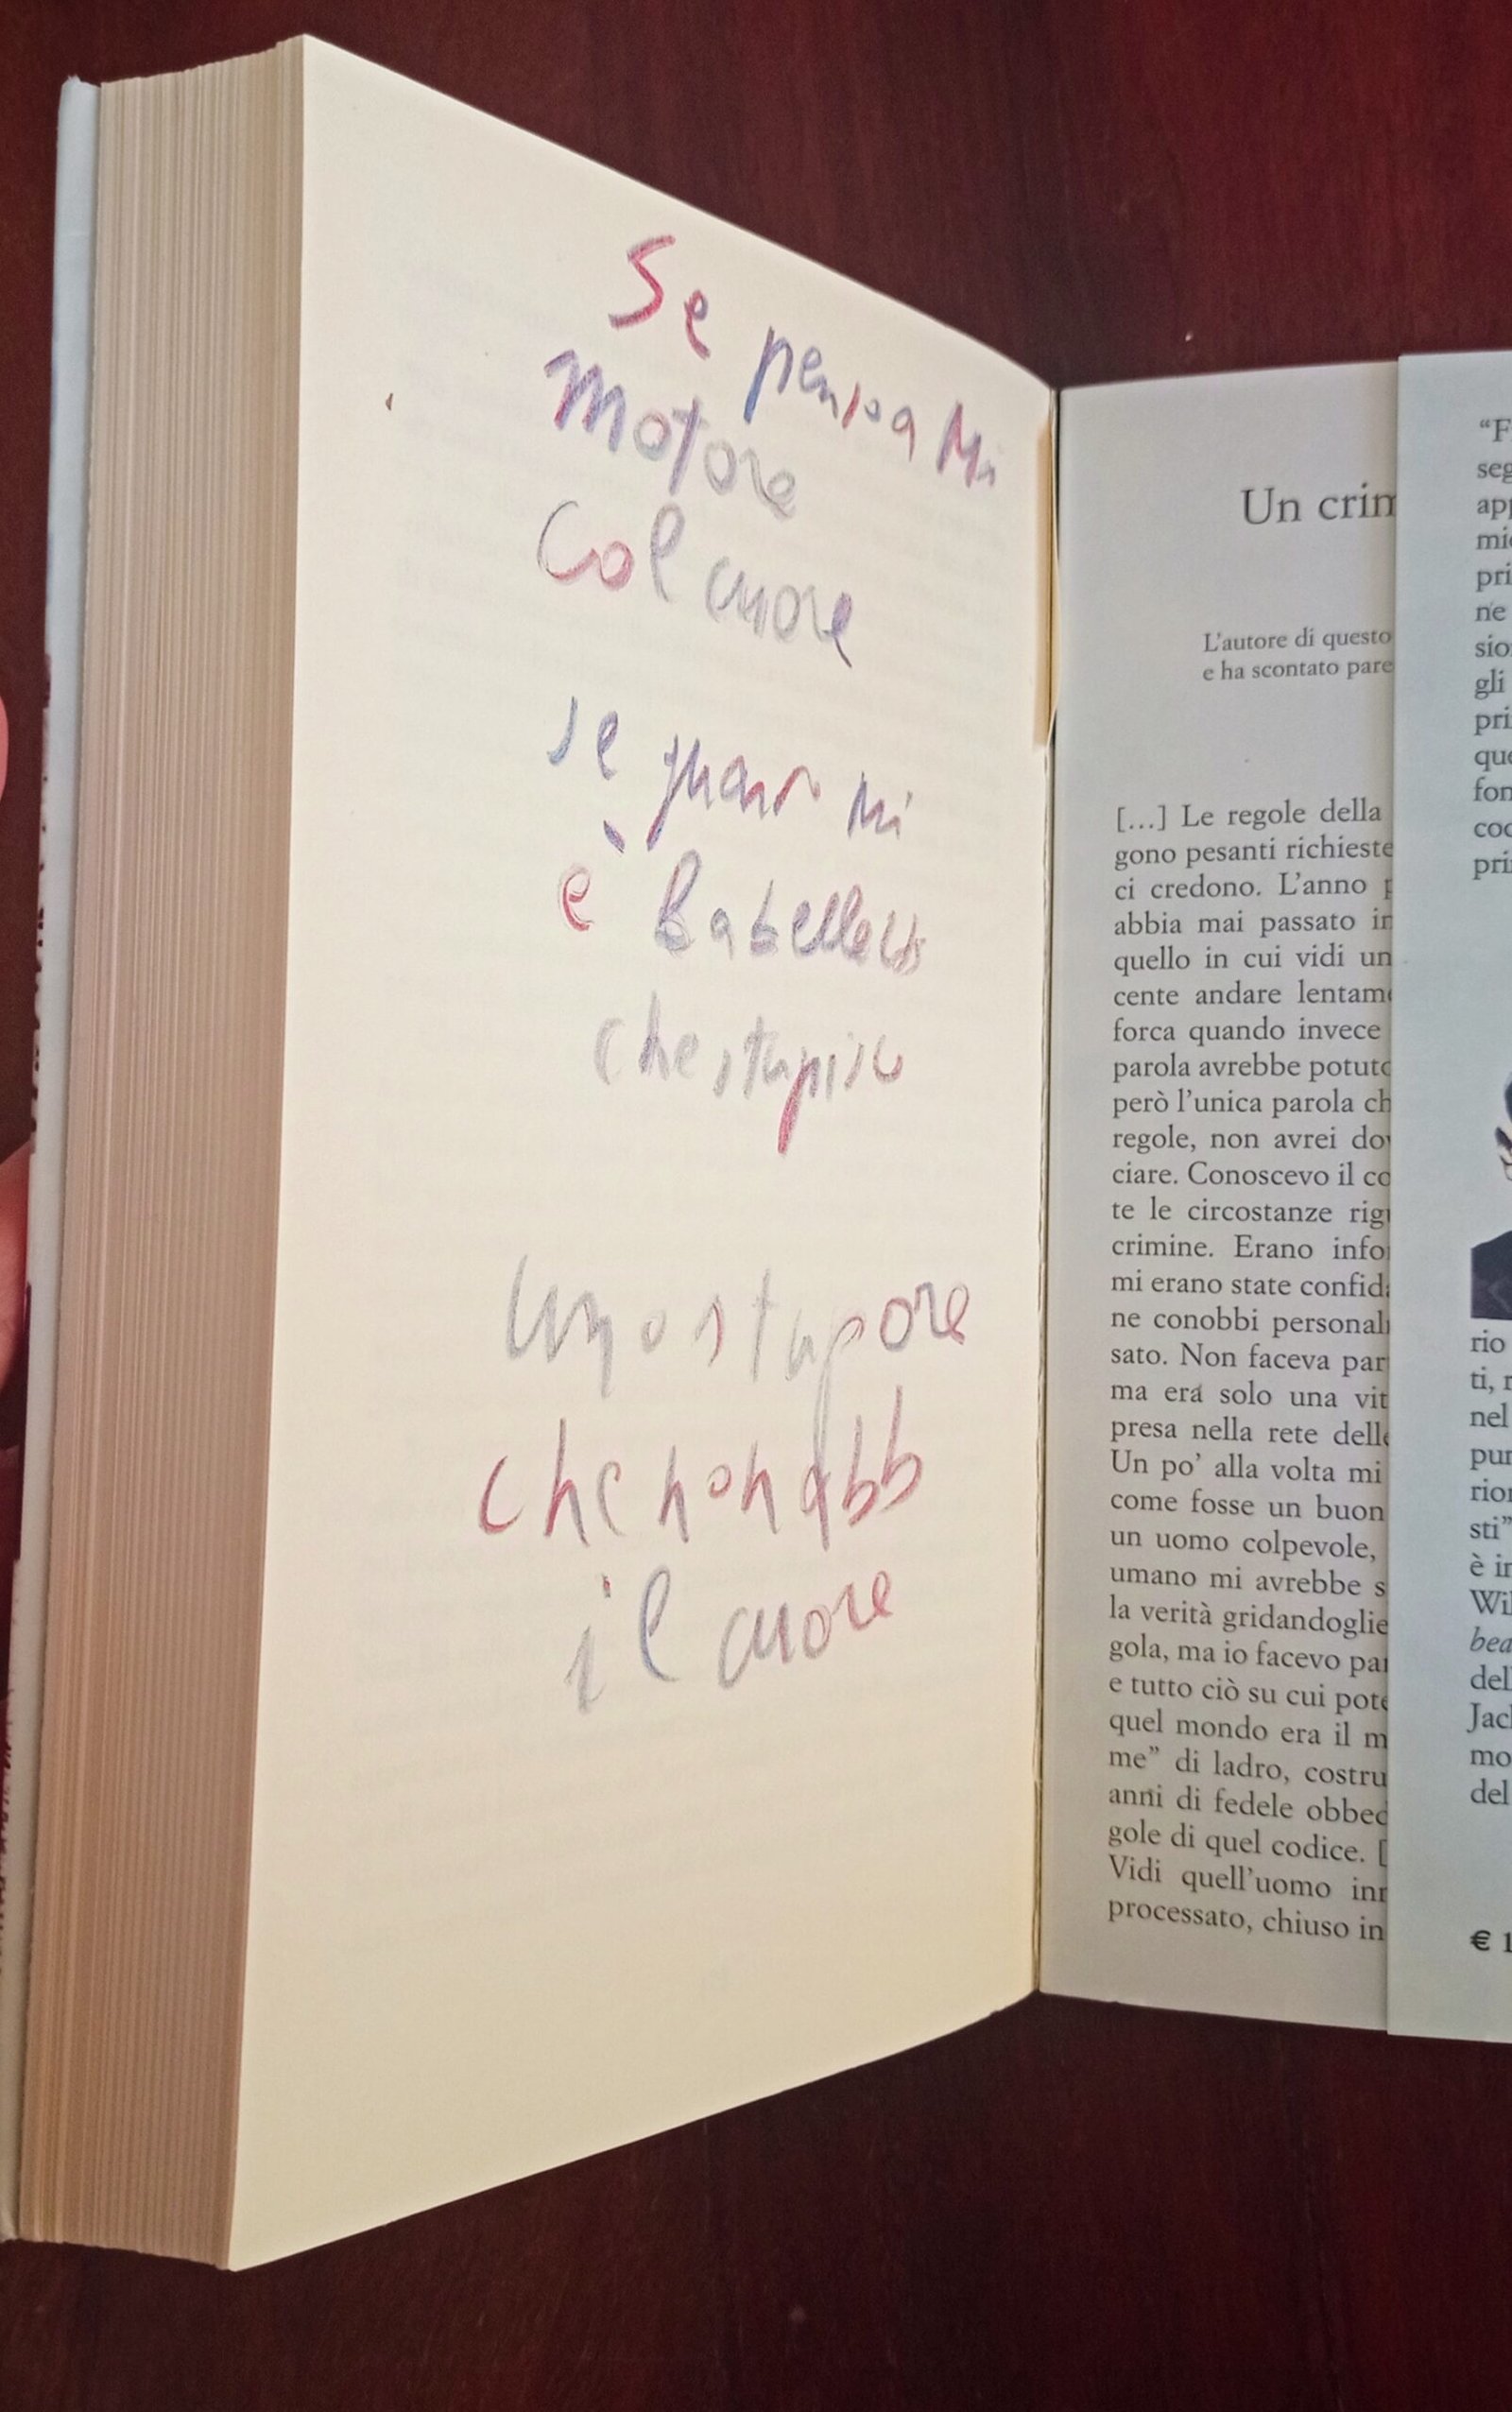 Se penso a Mi
Motore
Col cuore
se Mi
è
che stupisc
Uno stupore
che non abb
il cuore
Un crim
L'autore di questo
e ha scontato pare
[...] Le regole della
gono pesanti richieste
ci credono. L'anno p
abbia mai passato in
quello in cui vidi un
cente andare lentam
forca quando invece
parola avrebbe potuto
però l'unica parola ch
regole, non avrei dov
ciare. Conoscevo il co
te le circostanze rig
crimine. Erano info
mi erano state confid
ne conobbi personal
sato. Non faceva par
ma era solo una vit
presa nella rete delle
Un po' alla volta mi
come fosse un buon
un uomo colpevole,
umano mi avrebbe s
la verità gridandoglie
gola, ma io facevo pa
e tutto ciò su cui pote
quel mondo era il m
me” di ladro, costru
anni di fedele obbed
gole di quel codice. [
Vidi quell'uomo inn
processato, chiuso in
“F
seg
app
mic
pri
ne
sio
gli
pri
que
fon
coc
pri
rio
ti, r
nel
pur
rion
sti”
è in
Wil
bea
del
Jac
mo
del
€ 1